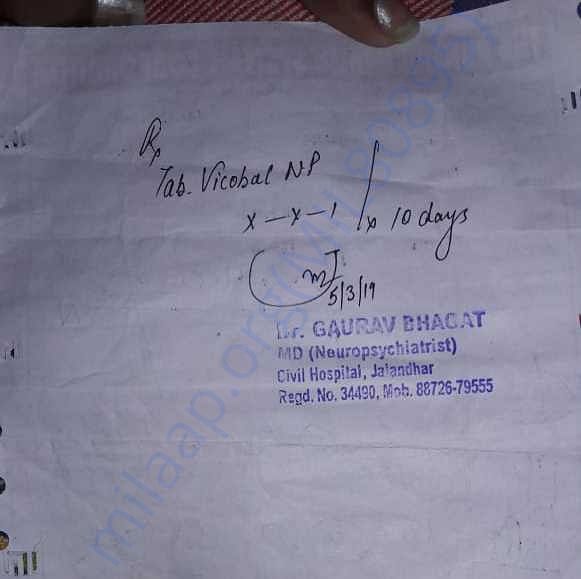 Rx
Tab. Vicobal NP
x — x — 1 / x 10 days
5/3/19
Dr. GAURAV BHAGAT
MD (Neuropsychiatrist)
Civil Hospital, Jalandhar
Regd. No. 34490, Mob. 88726-79555
milaap.org(MIL80895)